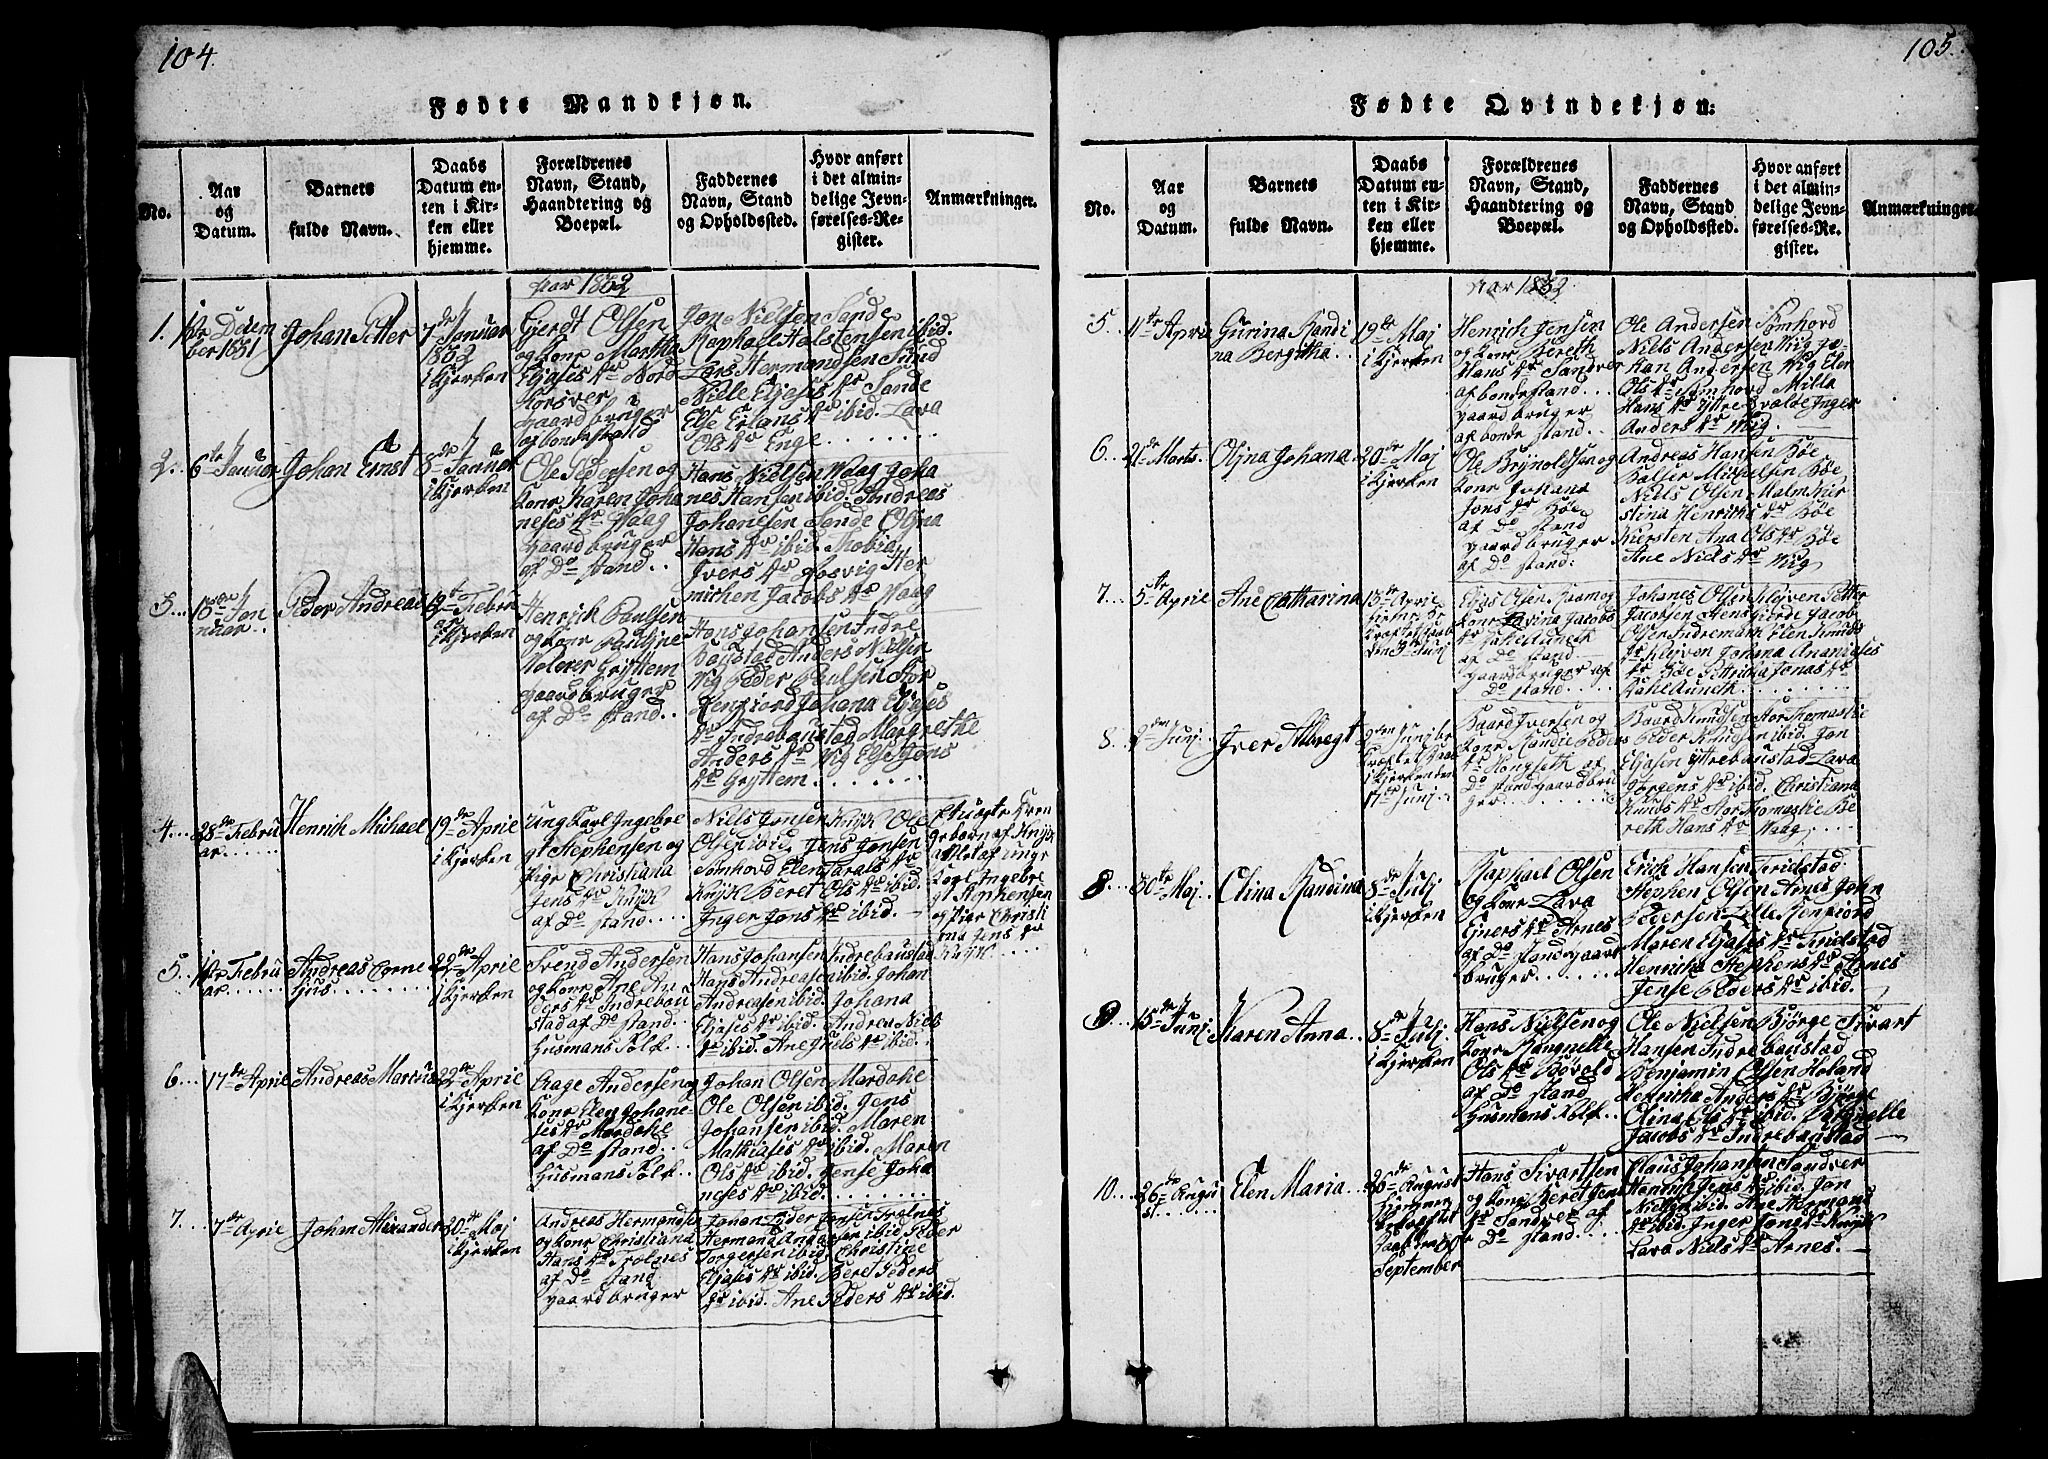 104.
Fødte Mandkjøn.
No.
Aar
og
Datum.
Barnets
fulde Navn.
Daabs
Datum en-
ten i Kir-
ken eller
hjemme.
Forældrenes
Navn, Stand,
Haandtering og
Boepæl.
Faddernes
Navn, Stand
og Opholdssted.
Hvor anført
i det almin-
delige Jevn-
førelses-Re-
gister.
Anmærkninger.
Aar 1832
1.
Decem
ber 1831
Johan Petter
7de Januar
1832
i Kjerken
Gjerdt Olsen
og Kone Martha
Eljases Dr Nord
Horsver
gaardbruger
af bondestand
Jon Nielsen Sande
Raphael Halstensen ibid.
Lars Hermandsen Sund
Nille Eljesis Dr Sande
Else Erlans Dr ibid. Lava
Ols Dr Enge
2.
6te Januar
Johan Ernst
8de Januar
i Kjerken
Ole Pedersen og
Kone Karen Joha
neses Dr Waag
gaardbruger
af Do stand
Hans Nielsen Waag Joha
nes Hansen ibid. Andreas
Johanesen Sande Oljna
Hans Dr ibid. Mobia
Ivers Dr Rosvig Her
michen Jacobs Dr Waag
3...
Jan
nuar..
Peder Andreas
19de Febru
ar
i Kjerken
Henrich Paulsen
og Kone Pauline
Volever Gryttem
gaardbruger
af Do stand..
Hans Johansen Indre
baustad Anders Nielsen
Wig Peder Paulsen Stor
Renfiord Johana Eljases
Dr Indrebaustad Margrethe
Anders Dr Wig Else Jens
Dr Gryttem
4...
28de Febru
ar
Henrich Michael
19de April
i Kjerken
Ungkarl Ingebre
gt Stephensen og
Pige Christiana
Jens Dr Kujk
af Do stand
Niels Jensen Kujk Ole
Olsen ibid. Jens Jonsen
Somhovd Elen Taralds Dr
Kujk Beret Ols Dr ibid.
Inger Jons Dr ibid.
Ungs
Karl Ingebre
gt Stephensen
og Pige Christi
ana Jens Dr
Kujk
5...
Febru
ar
Andreas Corne
ljus
22de April
i Kjerken
Svend Andersen
og Kone Ane An
ders Dr Indrebau
stad af Do stand
Husmans Folk
Hans Johansen Indrebaustad
Hans Andreasen ibid. Johan
Andreasen ibid. Johana
Eljases Dr ibid. Andrea Niels
Dr ibid. Ane Niels Dr ibid.
6...
17de April
Andreas Marcus
22de April
i Kjerken
Erage Andersen og
Kone Elen Johane-
ses Dr Mardahl
af Do stand
Husmans Folk
Johan Olsen Mardahl
Ole Olsen ibid. Jens
Johansen ibid. Maren
Mathiases Dr ibid. Maren
Ols Dr ibid. Jense Joha
neses Dr ibid.
7.
7de April
Johan Alexander
20de Maj
i Kjerken
Andreas Hermandsen
og Kone Christiana
Hans Dr Frolnes
af Do stand
gaardbruger
Johan Peder Jensen Frolnes
Hermand Andersen ibid Peder
Torgersen ibid Christine
Eljases Dr ibid. Beret Peders
Dr ibid. Ane Peders Dr ibid.
105.
Fødte Qvindekjøn:
No.
Aar
og
Datum.
Barnets
fulde Navn.
Daabs
Datum en-
ten i Kir-
ken eller
hjemme.
Forældrenes
Navn, Stand,
Haandtering og
Boepæl.
Faddernes
Navn, Stand
og Opholdssted.
Hvor anført
i det almin-
delige Jevn-
førelses-Re-
gister.
Anmærkninger.
Aar 1832.
5.
11te April
Gurina Randi
na Bergitha
19de Maj
i Kjerken
Henrich Jensen
og Kone Bereth
Hans Dr Sandver
af bondestand
gaardbruger
af bonde stand
Ole Andersen Somhovd
Niels Andersen Wig Jo-
han Andersen Wig Elen
Ols Dr Somhovd Milla
Hans Dr Yttre Inger
Anders Dr Wig.
6.
21de Marts
Oljna Johana
20de Maj
i Kjerken
Ole Brynoldsen og
Kone Johana
Jons Dr Bøe
af Do stand
gaardbruger
af Do stand:
Andreas Hansen Bøe
Balser Michelsen Bøe
Niels Olsen Malm Kir
stina Henrichs Dr Bøe
Kiersten Ana Ols Dr Bøe
Ane Niels Dr Wig
7...
5te April
Ane Catharina
13de April
hjemme
den 3de Junj
Elias Olsen Raam og
Kone Lavina Jacobs
Dr
af Do stand
gaardbruger af
Do stand
Johanes Olsen Klyven Petter
Jacobsen Jacob
Olsen Indremark Elen Knuds
Dr Klyven Johana Ananiases
Dr Bøe Jonas Dr
8.
2den Junj
Iver Albregt
i Kjerken den
17de Junj
Baard Iversen og
Kone Randie Peders
Dr Hongseth af
Do stand gaardbru
ger
Baard Knudsen Stor Thomastie
Peder Knudsen ibid. Jon
Eljasen Yttrebaustad Lava
Jørgens Dr ibid. Christiana
Knuds Dr Stor Thomastie Be
reth Hans Dr Waag
8...
30te Maj
Elina Randina
8de Julj
i Kjerken
Raphael Olsen
og Kone Lava
Ejners Dr Arnes
af Do stand gaard
bruger
Erich Hansen Fridstad
Stephen Olsen Arnes John
Pedersen Lille Renfiord
Maren Eljases Dr Fridstad
Henricha Stephens Dr Arnes
Jense Peders Dr ibid.
9...
15de Junj
Karen Anna
8de Julj
i Kjerken
Hans Nielsen og
Kone Rangnelle
Ols Dr Bøvold
af Do stand
Husmans Folk
Ole Nielsen Bjørge Sivart
Hansen Indrebaustad
Benjamin Olsen Holand
Henricha Anders Dr Bjørge
Olina Ols Dr ibid. Ragnelle
Jacobs Dr Indrebaustad
10...
26de Augu
st
Elen Maria
26de August
hjemme
September
Hans Sivartsen
og Kone Beret Jens
Dr Sandver af
Do stand
Claus Johansen Sandver
Henrich Jens Dr ibid. Jon
Nielsen ibid. Ane Hermand
Dr ibid. Inger Jons Dr Kujk
Lava Niels Dr Arnes.